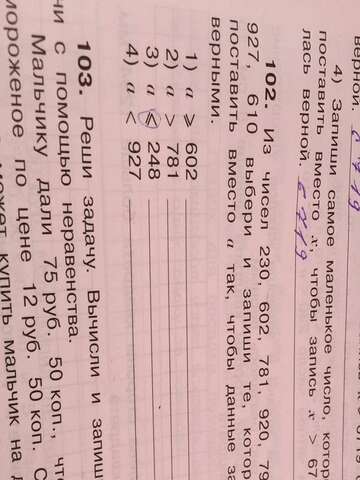 верной. с 719
4) Запиши самое маленькое число, котор
поставить вместо x, чтобы запись x > 67
лась верной. с 719
102. Из чисел 230, 602, 781, 920, 79
927, 610 выбери и запиши те, котор
поставить вместо a так, чтобы данные за
верными.
1) a > 602
2) a > 781
3) a < 248
4) a < 927
103. Реши задачу. Вычисли и запиш
с помощью неравенства.
Мальчику дали 75 руб. 50 коп., чт
мороженое по цене 12 руб. 50 коп. С
может купить мальчик на д